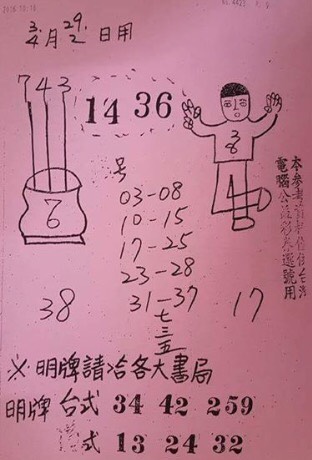 3/4月 29/2 日用
743
14 36
38
6
4
号
03-08
10-15
17-25
23-28
31-37
七三五
38
17
本參考
電腦公益彩券選號用
※明牌請洽各大書局
明牌 台式 34 42 259
式 13 24 32